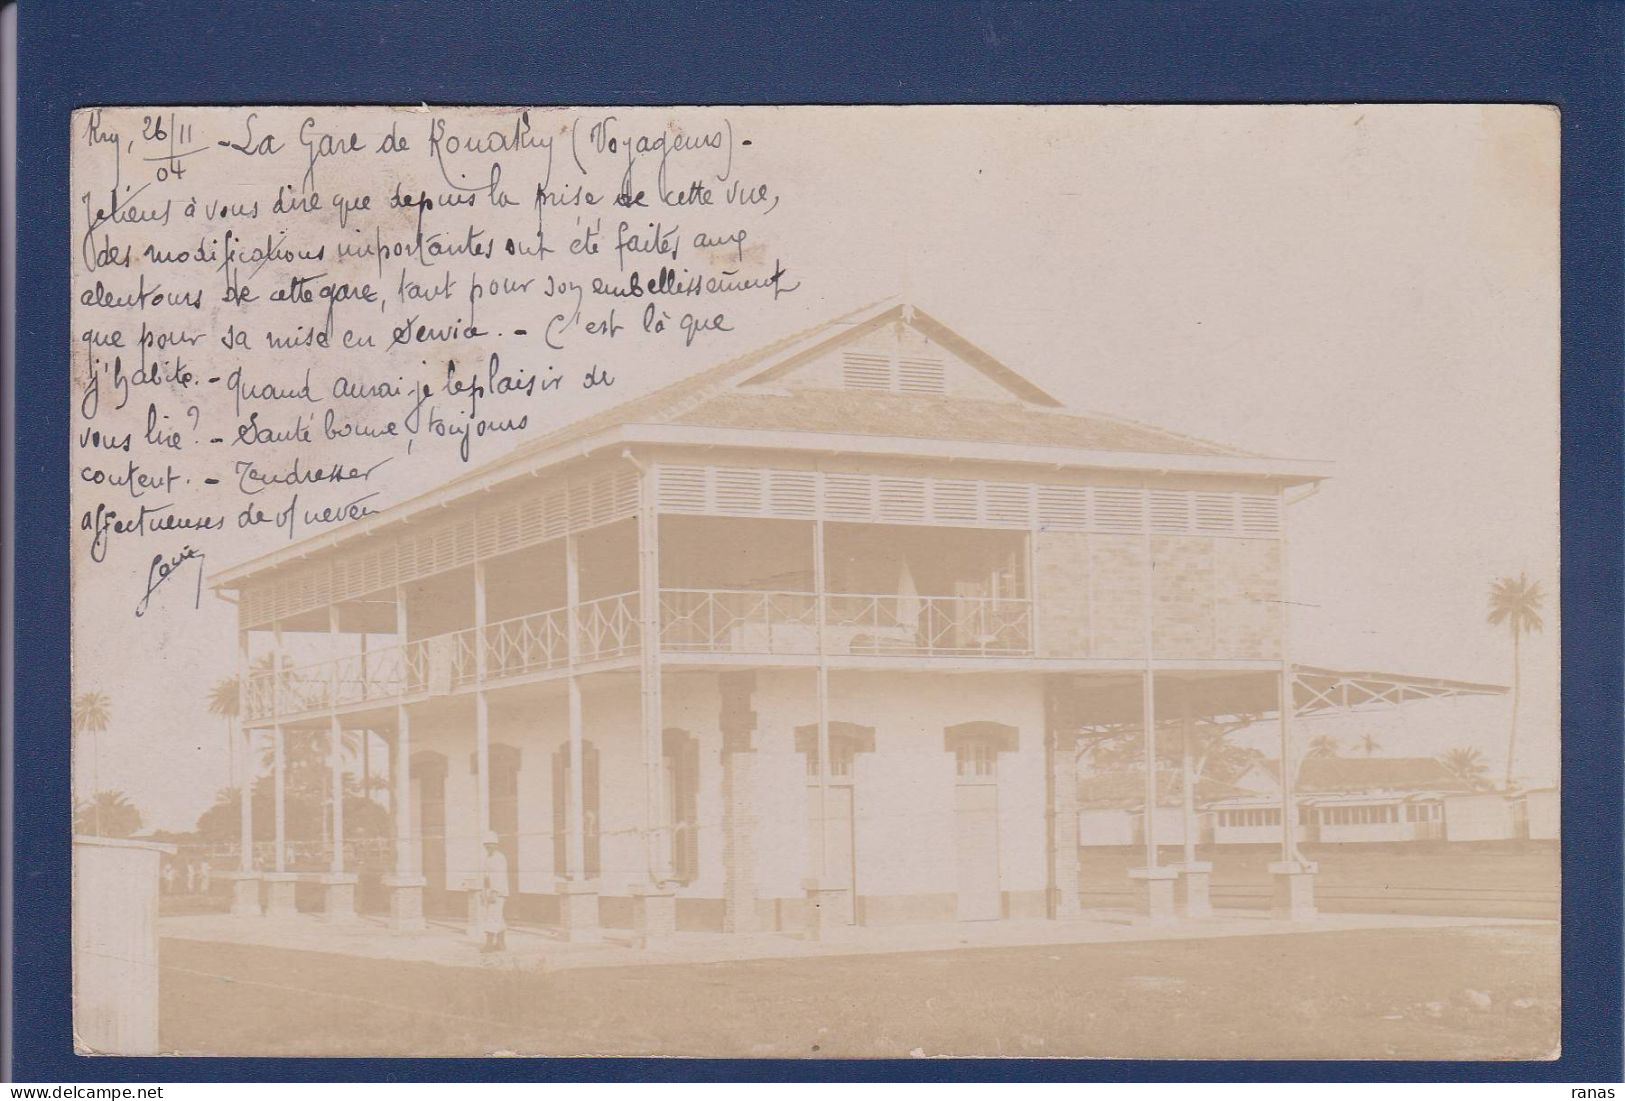 Kry, 26/11/04 - La Gare de Konakry (Voyageurs) -
Je tiens à vous dire que depuis la prise de cette vue,
des modifications importantes ont été faites aux
alentours de cette gare, tant pour son embellissement
que pour sa mise en service. - C'est là que
j'habite. - Quand aurai-je le plaisir de
vous lire? - Santé bonne, toujours
content. - Tendresses
affectueuses de
ranas